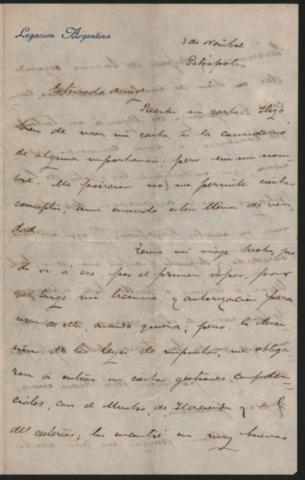 Legacion Argentina
3 de Novbre
Petrópolis
Estimado amigo
Recibi su carta. Hizo
bien de usar mi carta si la consideró
de alguna importancia, pero sin mi nom
bre. Me posicion no me permite ciertas
aun cuando esten llenas de ver
dad.
Tenia mi viaje hecho, pue
de ir á esa, por el primer vapor, por
que tengo mi licencia y autorizacion para
usar de ella cuando quiera; pero la
de las leyes de impuestos, me obliga
ron á entrar en ciertas gestiones confiden
ciales, con el Mntro. de Hacienda y el
del exterior; los encontré en muy buenas